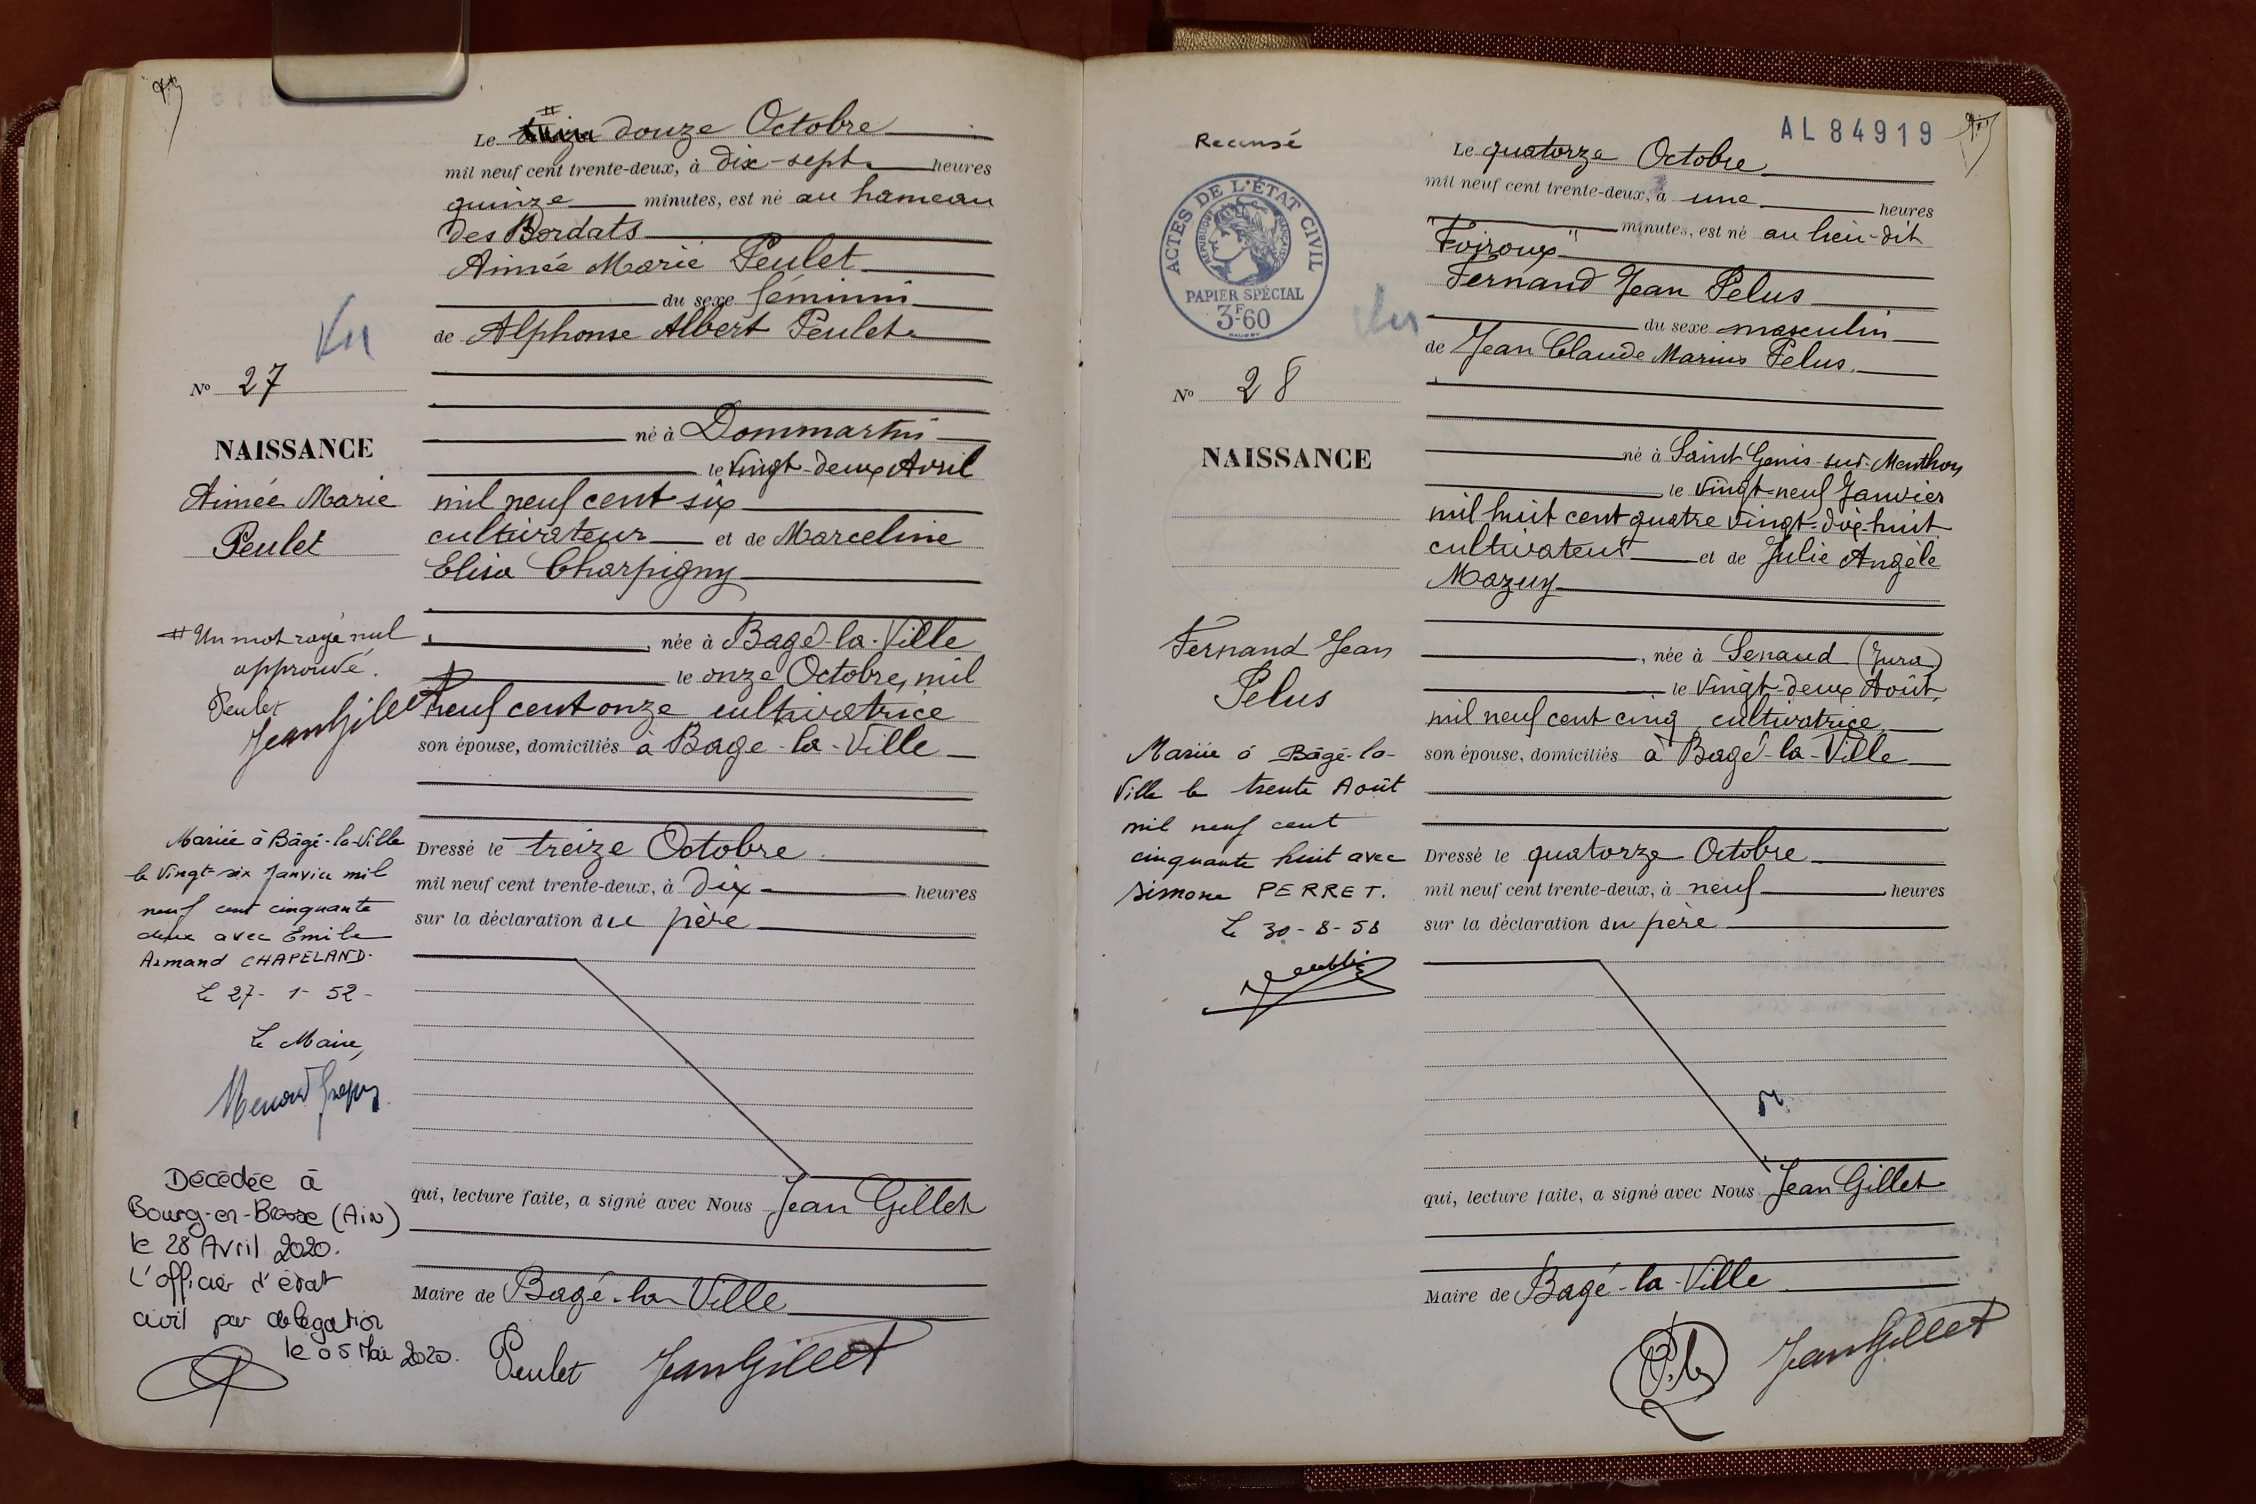 Le treize douze Octobre
mil neuf cent trente-deux, à dix-sept heures
quinze minutes, est né au hameau
des Bordats
Aimée Marie Peulet
du sexe féminin
de Alphonse Albert Peulet
Vu
N° 27
né à Dommartin
NAISSANCE
le vingt-deux Avril
Aimée Marie
Peulet
mil neuf cent six
cultivateur et de Marceline
Elisa Charpigny
# Un mot rayé nul
approuvé.
Peulet
Jean Gillet
née à Bagé-la-Ville
le onze Octobre, mil
neuf cent onze cultivatrice
son épouse, domiciliés à Bagé-la-Ville
Mariée à Bâgé-la-Ville
le vingt-six Janvier mil
neuf cent cinquante
deux avec Emile
Armand CHAPELAND.
Le 27-1-52-
Le Maire,
Dressé le treize Octobre
mil neuf cent trente-deux, à dix heures
sur la déclaration du père
Décédée à
Bourg-en-Bresse (Ain)
le 28 Avril 2020.
L'officier d'état
civil par délégation
le 05 Mai 2020.
qui, lecture faite, a signé avec Nous Jean Gillet
Maire de Bagé-la-Ville
Peulet Jean Gillet
AL 84919
Recensé
ACTES DE L'ÉTAT CIVIL
RÉPUBLIQUE FRANÇAISE
PAPIER SPÉCIAL
3F60
Vu
Le quatorze Octobre
mil neuf cent trente-deux, à une heures
minutes, est né au lieu-dit
"Foiroux"
Fernand Jean Pelus
du sexe masculin
de Jean Claude Marius Pelus
N° 28
NAISSANCE
né à Saint Genis-sur-Menthon
le vingt-neuf Janvier
mil huit cent quatre vingt-dix-huit
cultivateur et de Julie Angèle
Mazuy
Fernand Jean
Pelus
née à Senaud (Jura)
le vingt-deux Août
mil neuf cent cinq cultivatrice
son épouse, domiciliés à Bagé-la-Ville
Marié à Bâgé-la-
Ville le trente Août
mil neuf cent
cinquante huit avec
Simone PERRET.
Le 30-8-58
Dressé le quatorze Octobre
mil neuf cent trente-deux, à neuf heures
sur la déclaration du père
qui, lecture faite, a signé avec Nous Jean Gillet
Maire de Bagé-la-Ville
Jean Gillet